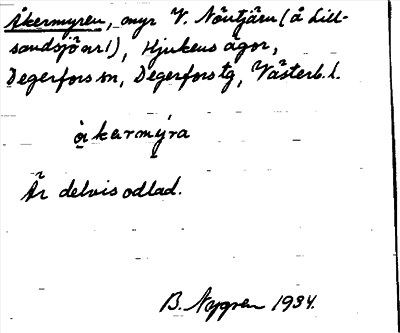 Åkermyren, myr V. Nöutjärn (å Lill-
sandsjöarl), Hjukens ägor,
Degerfors sn, Degerfors tg, Västerb. l.
åkermýra
Är delvis odlad.
B. Nygren 1934.